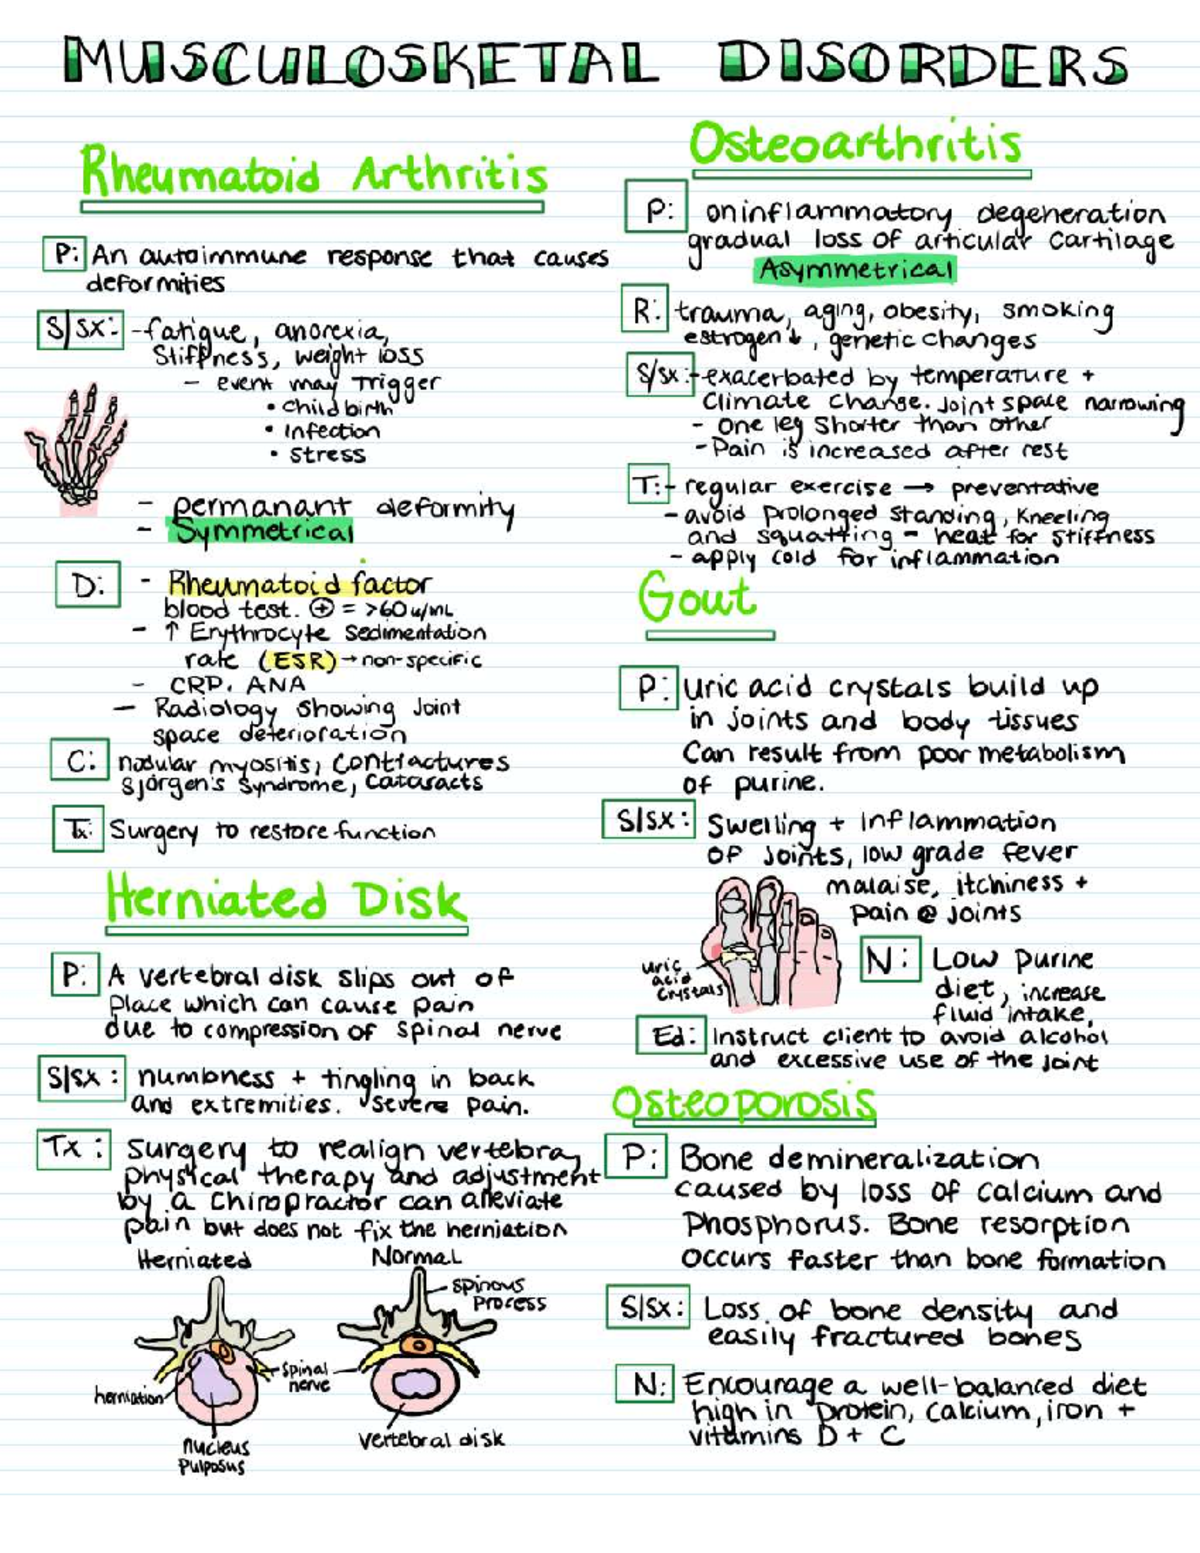 MUSCULOSKETAL DISORDERS
Rheumatoid Arthritis
P: An autoimmune response that causes
deformities
S/sx: -fatigue, anorexia,
Stiffness, weight loss
- event may Trigger
• Childbirth
• Infection
• Stress
- permanant deformity
- Symmetrical
D: - Rheumatoid factor
blood test. ⊕ = >60 u/mL
- ↑ Erythrocyte Sedimentation
rate (ESR) → non-specific
- CRP. ANA
- Radiology Showing Joint
space deterioration
C: nodular myositis, contractures
Sjörgen's Syndrome, Cataracts
Tx: Surgery to restore function
Herniated Disk
P: A vertebral disk slips out of
Place which can cause pain
due to compression of spinal nerve
S/sx: numbness + tingling in back
and extremities. severe pain.
Tx: Surgery to realign vertebra,
physical therapy and adjustment
by a chiropractor can alleviate
pain but does not fix the herniation
Herniated
Normal
spinous
process
spinal
nerve
herniation
nucleus
pulposus
vertebral disk
Osteoarthritis
P: oninflammatory degeneration
gradual loss of articular cartilage
Asymmetrical
R: trauma, aging, obesity, smoking
estrogen ↓, genetic changes
S/sx: -exacerbated by temperature +
Climate change. Joint space narrowing
- One leg Shorter than other
- Pain is increased after rest
T: - regular exercise → preventative
- avoid prolonged standing, kneeling
and squatting - heat for stiffness
- apply cold for inflammation
Gout
P: Uric acid crystals build up
in joints and body tissues
Can result from poor metabolism
of purine.
S/sx: Swelling + inflammation
of Joints, low grade fever
malaise, itchiness +
pain @ joints
uric
acid
crystals
N: Low purine
diet, increase
fluid intake,
Ed: Instruct client to avoid alcohol
and excessive use of the joint
Osteoporosis
P: Bone demineralization
caused by loss of calcium and
Phosphorus. Bone resorption
occurs faster than bone formation
S/sx: Loss of bone density and
easily fractured bones
N: Encourage a well-balanced diet
high in protein, calcium, iron +
vitamins D + C